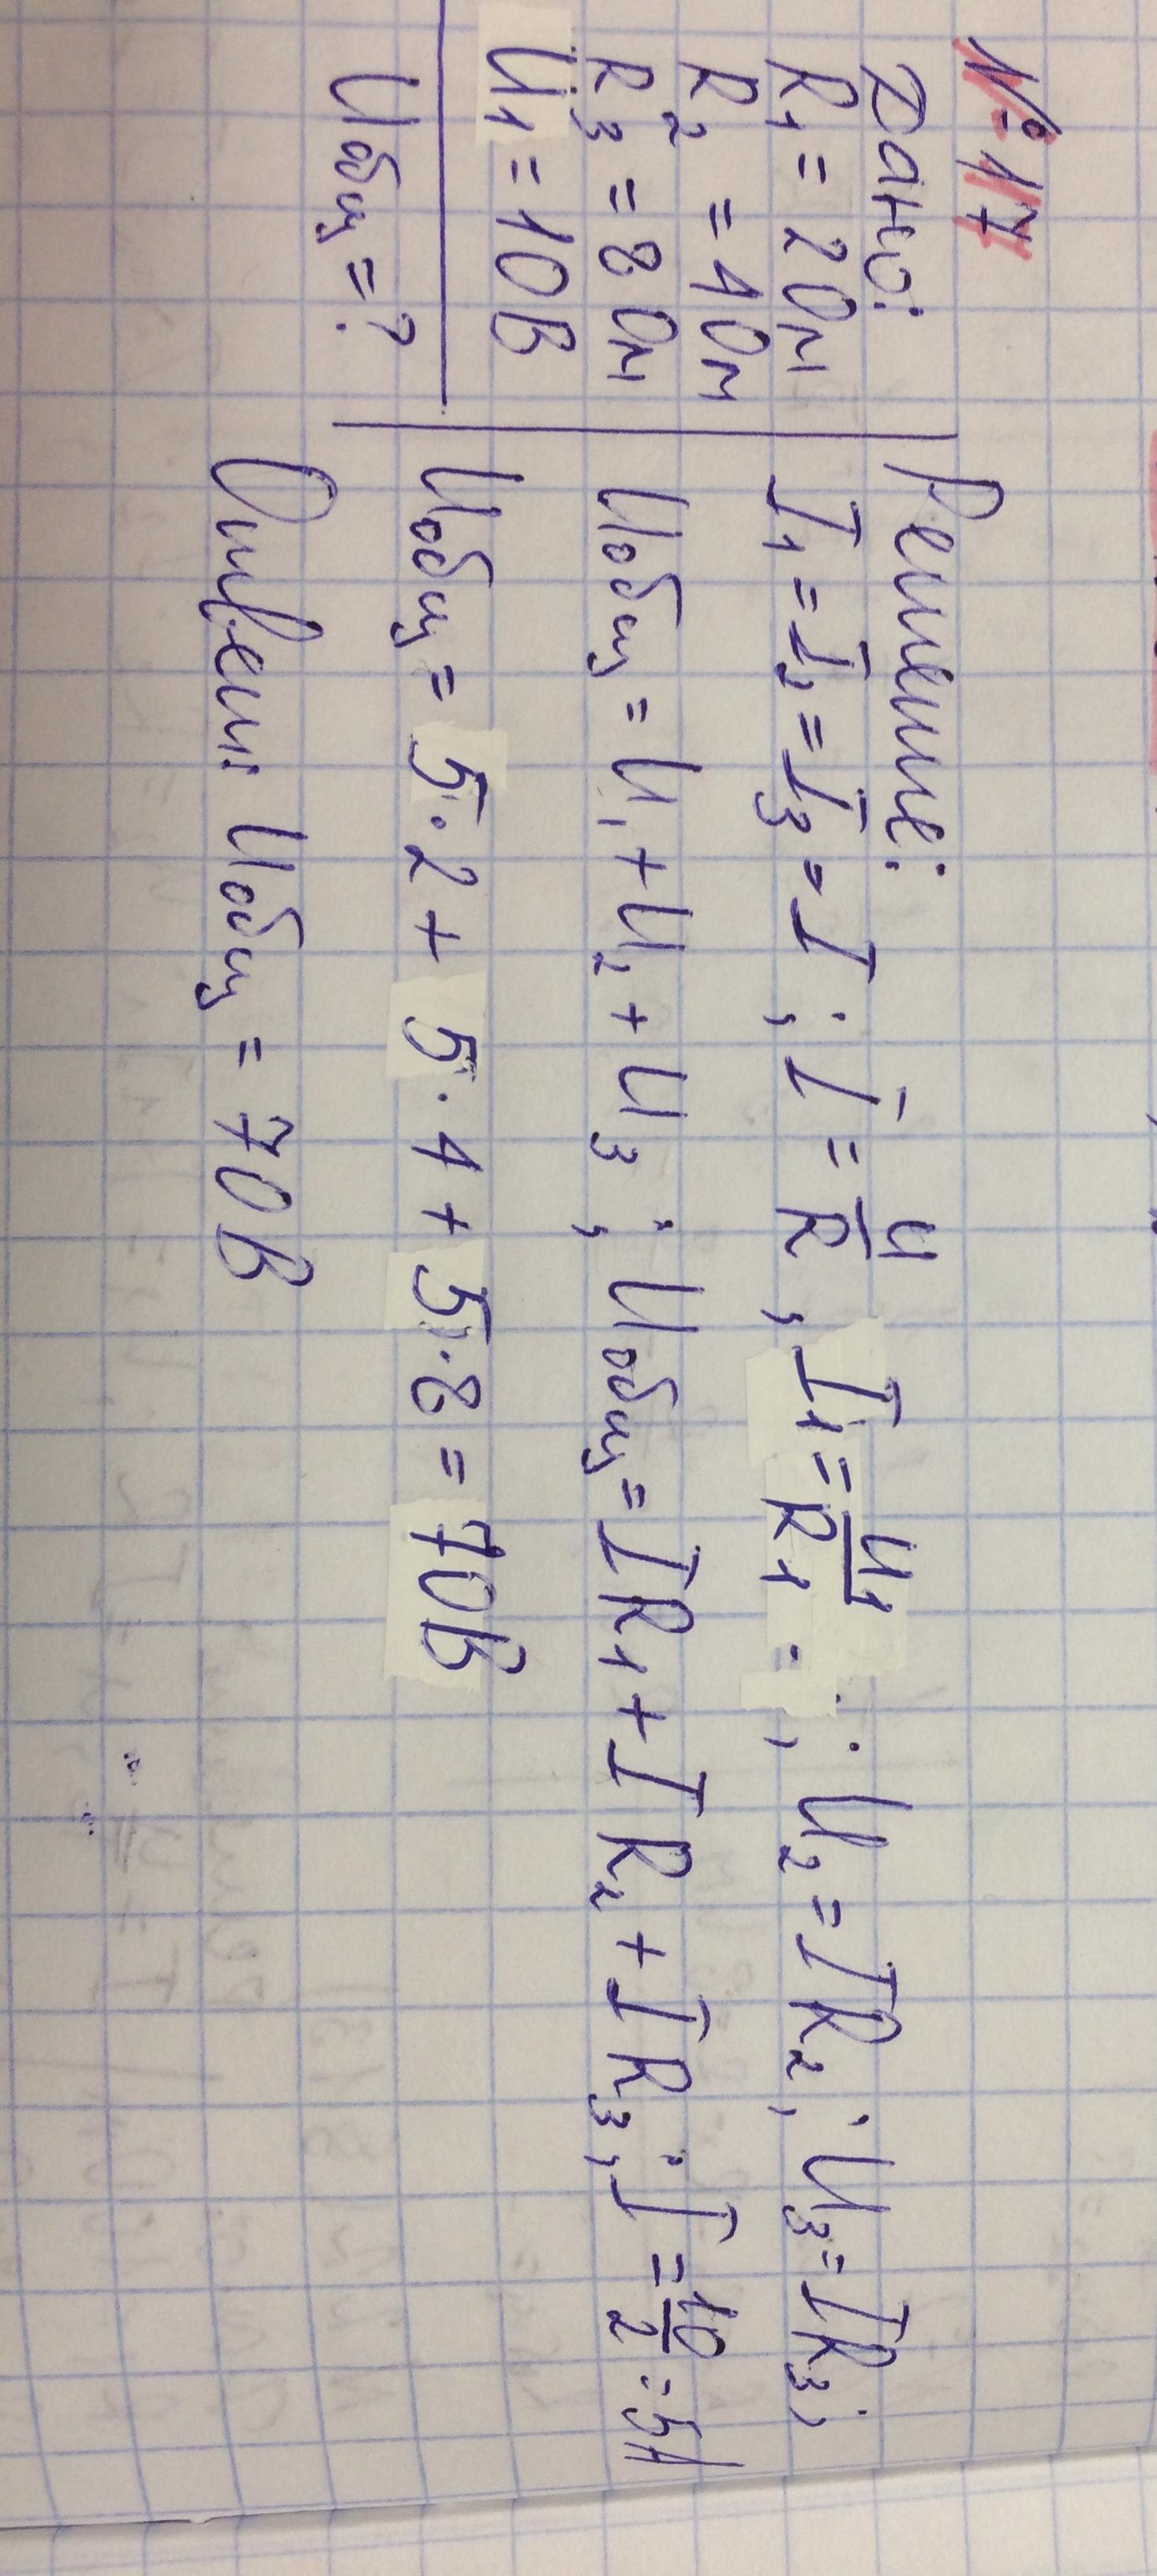 № 17
Дано:
R₁ = 2 Ом
R₂ = 4 Ом
R₃ = 8 Ом
U₁ = 10 В
Uобщ = ?
Решение:
I₁ = I₂ = I₃ = I ; I = U/R , I₁ = U₁/R₁ ; U₂ = IR₂ ; U₃ = IR₃ ;
Uобщ = U₁ + U₂ + U₃ ; Uобщ = IR₁ + IR₂ + IR₃ ; I = 10/2 = 5А
Uобщ = 5·2 + 5·4 + 5·8 = 70В
Ответ: Uобщ = 70В